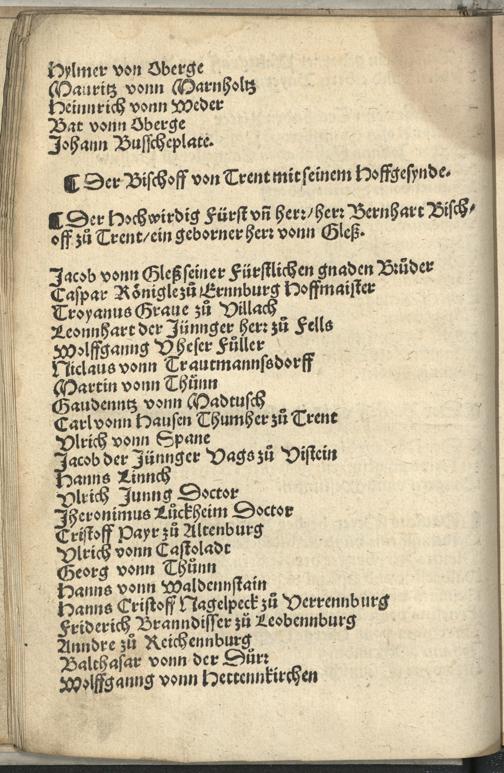 Hylmer von Oberge
Mauritz vonn Marnholtz
Heinnrich vonn Weder
Bat vonn Oberge
Johann Busscheplate.
¶ Der Bischoff von Trent mit seinem Hoffgesynde.
¶ Der Hochwirdig Fürst vñ herr/herr Bernhart Bisch⸗
off zů Trent/ein geborner herr vonn Gleß.
Jacob vonn Gleß seiner Fürstlichen gnaden Brůder
Caspar Königle zů Ernnburg Hoffmaister
Troyanus Graue zů Villach
Leonnhart der Jünnger herr zů Fells
Wolffganng Vheser Füller
Niclaus vonn Trautmannsdorff
Martin vonn Thunn
Gaudenntz vonn Madtusch
Carl vonn Hausen Thumher zů Trent
Vlrich vonn Spane
Jacob der Jünnger Vags zů Vistein
Hanns Linnch
Vlrich Junng Doctor
Jheronimus Lückheim Doctor
Cristoff Payr zů Altenburg
Vlrich vonn Castoladt
Georg vonn Thunn
Hanns vonn Waldennstain
Hanns Cristoff Nagelpeck zů Verrennburg
Friderich Branndisser zů Leobennburg
Anndre zů Reichennburg
Balthasar vonn der Dürr
Wolffganng vonn Hettennkirchen